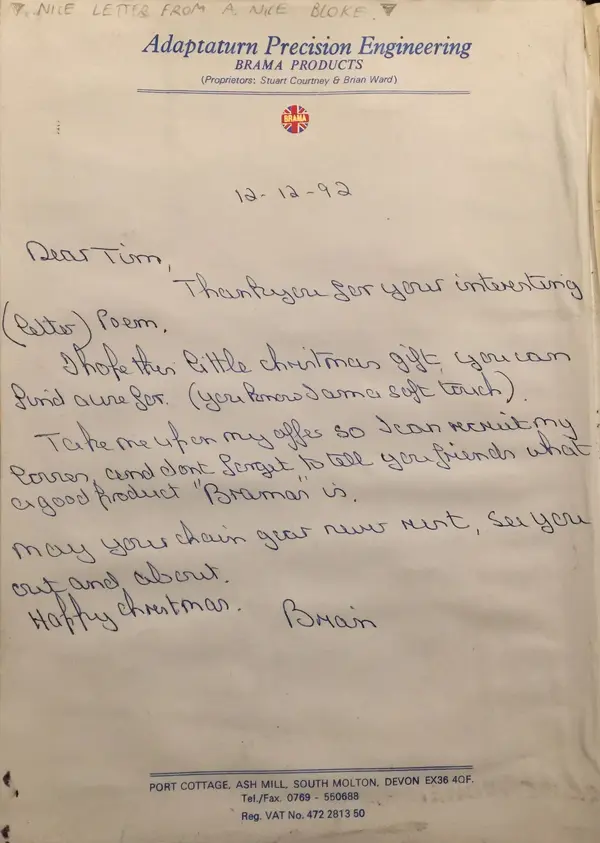 ▽. NICE LETTER FROM A NICE BLOKE. ▽
Adaptaturn Precision Engineering
BRAMA PRODUCTS
(Proprietors: Stuart Courtney & Brian Ward)
BRAMA
12-12-92
Dear Tim,
Thankyou for your interesting
(letter) Poem.
I hope this little christmas gift you can
find a use for. (you know I am a soft touch).
Take me up on my offer so I can recruit my
losses, and dont forget to tell you friends what
a good product "Bramas" is.
may your chain gear never rust, see you
out and about.
Happy christmas. Brian
PORT COTTAGE, ASH MILL, SOUTH MOLTON, DEVON EX36 4QF.
Tel./Fax. 0769 - 550688
Reg. VAT No. 472 2813 50